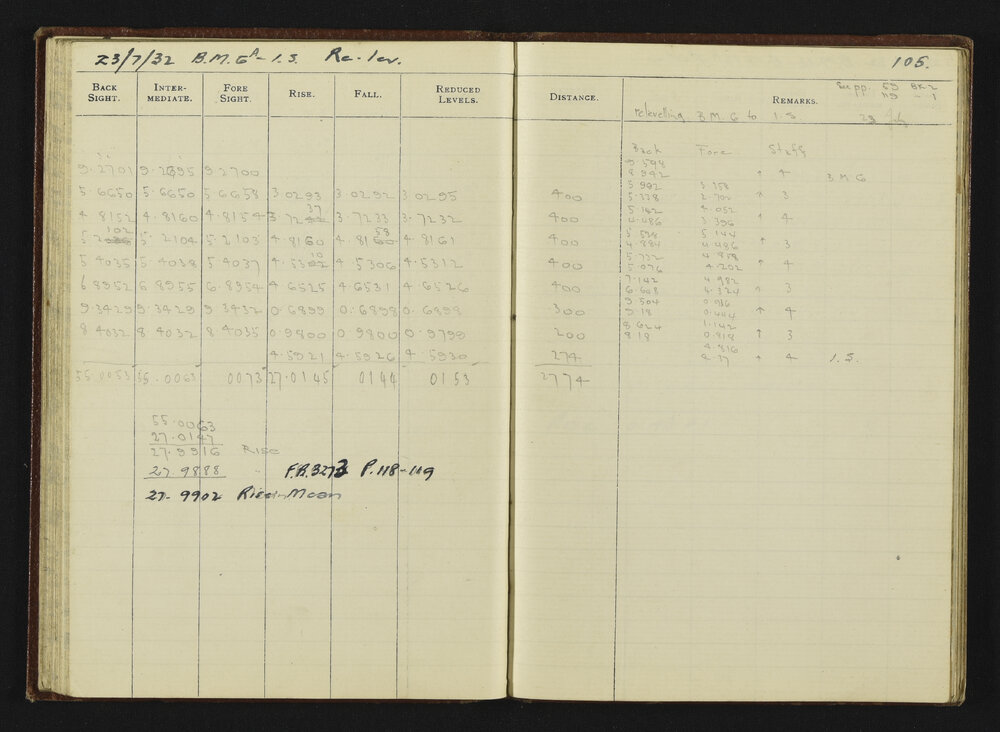 23/7/32 B.M. G - I.S. Re-lev. 105.
BACK SIGHT. INTER-MEDIATE. FORE SIGHT. RISE. FALL. REDUCED LEVELS. DISTANCE. REMARKS.
Supp. 59 BK 2
119 - 1
relevelling B M G to I.S.
Back Fore Staff
9.2701 9.2695 9 2700
9.598
8.942 ↑ 4 B M G
5.6650 5.6650 5 6658 3 0293 3 0292 3 0295 400
5.992 3.358
5.338 2.702 ↑ 3
4 8152 4.8160 4.8154 3.7237 3.7233 3.7232 400
5.142 4.052
4.486 3.396 ↑ 4
5.2102 5.2104 5.2103 4.8160 4.8158 4.8161 400
5.538 5.144
4.884 4.486 ↑ 3
5 4035 5.4038 5 4037 4.5310 4 5306 4.5312 400
5.732 4.858
5.076 4.202 ↑ 4
6 8952 6 8955 6.8954 4.6525 4.6531 4.6526 400
7.142 4.982
4.324 ↑ 3
9.3429 9.3429 9 3432 0.6899 0.6898 0.6898 300
9 504
9.18 0.444 ↑ 4
8 4032 8.4032 8.4035 0.9800 0.9800 0.9799 200
8.624 1.142
8.18 0.818 ↑ 3
4.5921 4.5926 4.5930 274
4.816
↑ 4 I.S.
55 0053 55.0063 0073 27.0145 0144 0153 2774
55.0063
27.0147
27.9916 Rise
27.9888 " F.B.3273 P.118-119
27.9902 Rise-Mean